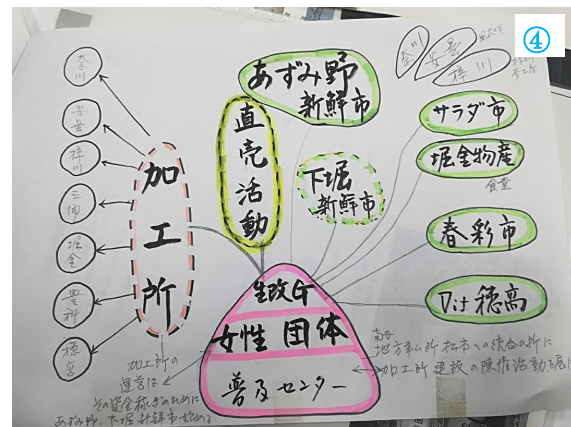 ④
奈川
安曇
梓川
三郷
堀金
豊科
穂高
加工所
直売活動
あずみ野
新鮮市
下堀
新鮮市
奈川
安曇
梓川
サラダ市
堀金物産
食堂
春彩市
Vif穂高
生改G
女性団体
普及センター
加工所の
運営は
その資金稼ぎのために
あずみ野、下堀新鮮市を始める
地方事ム所 松本への統合の折に
加工所建設の陳情活動を